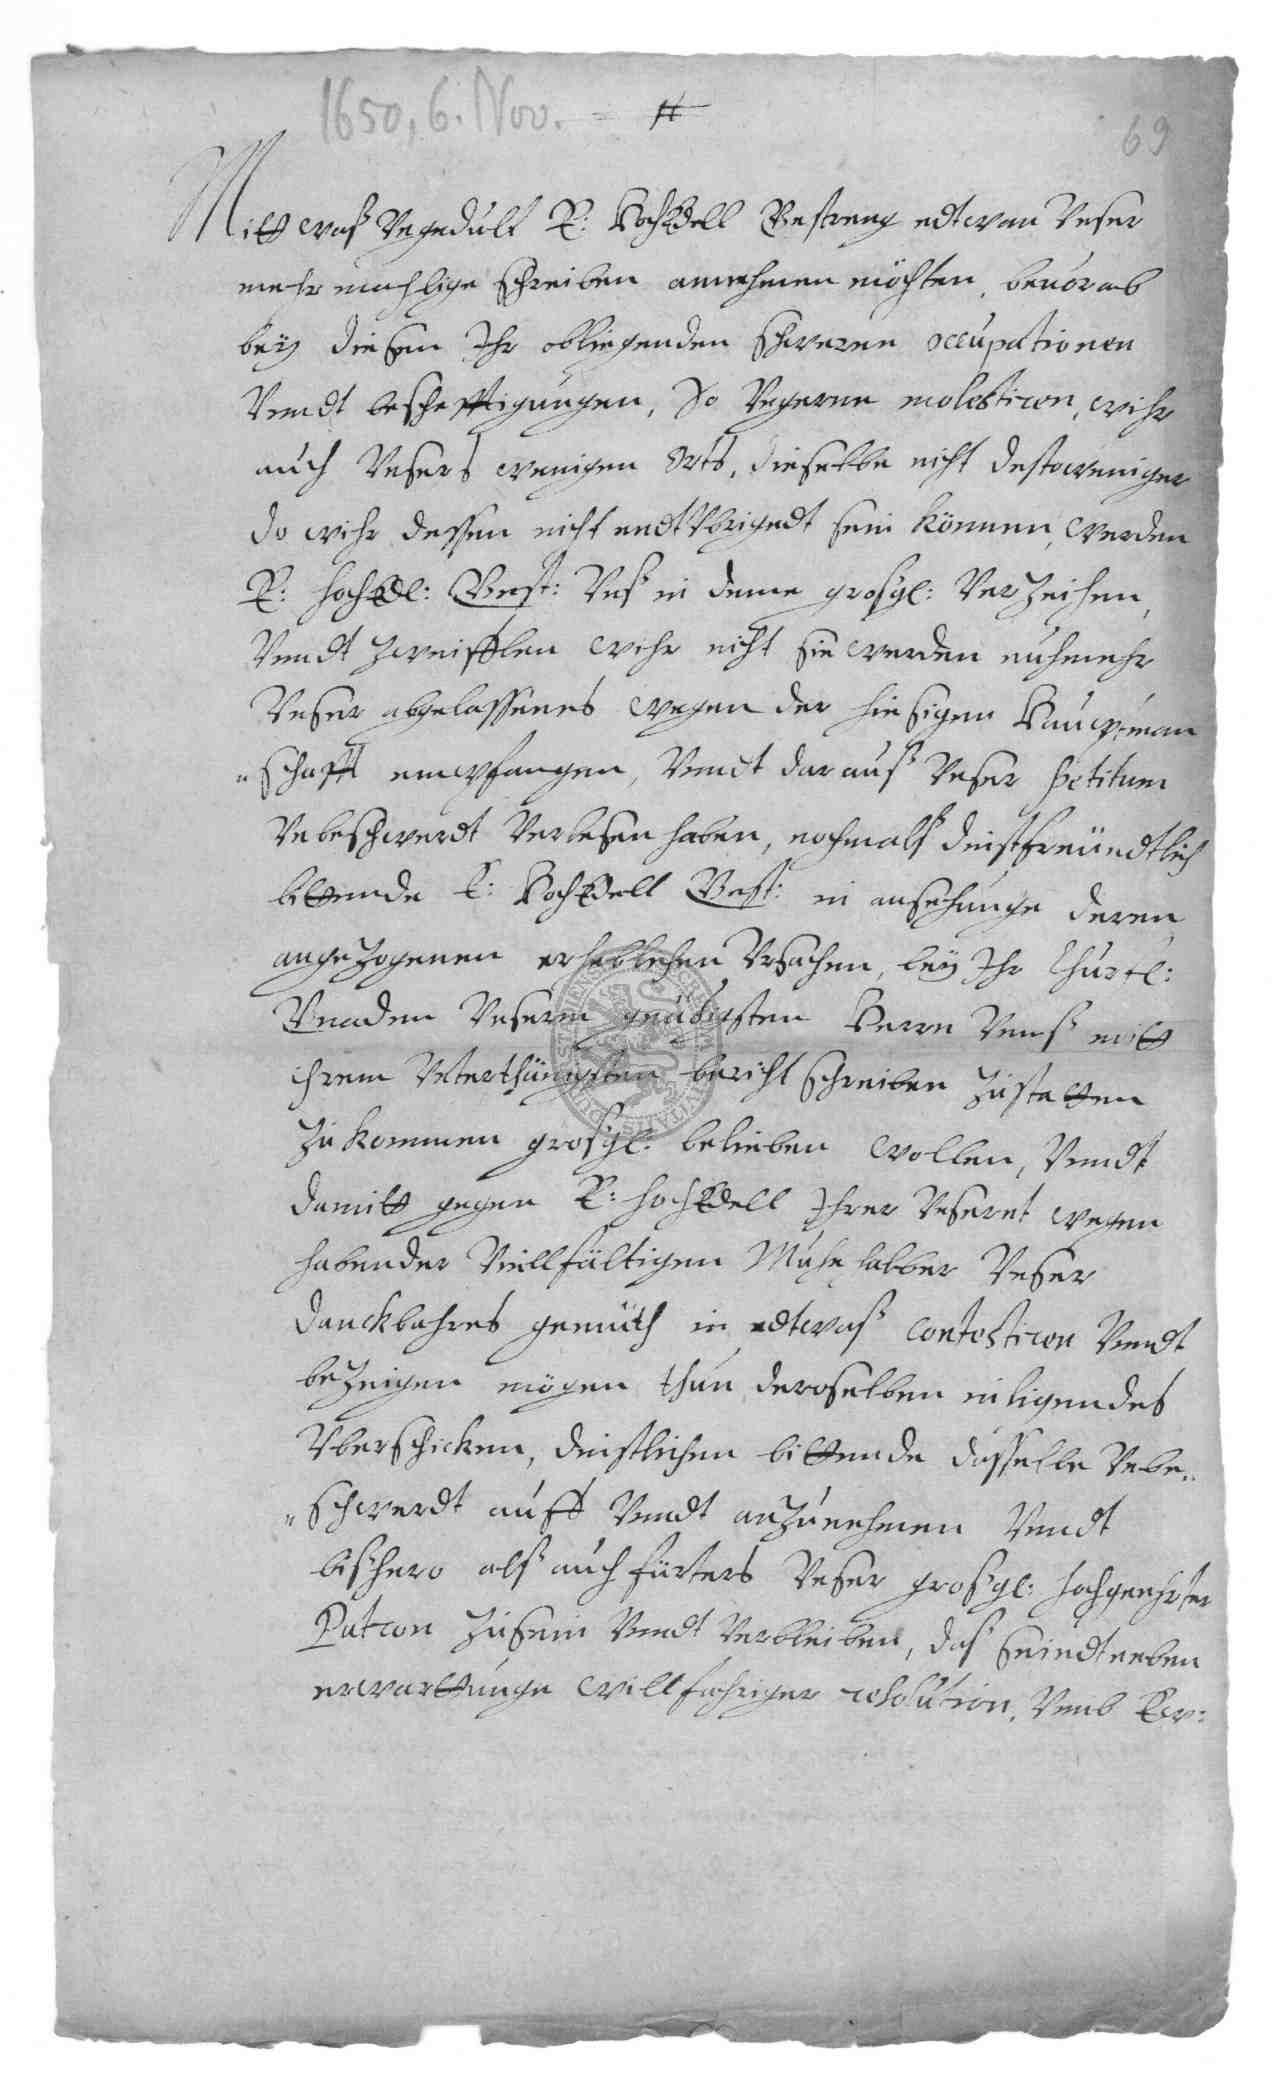 1650, 6. Nov.
69
Mitt waß Vngedult E: HochEdell Gestreng edtwan Vnser
mehr mahlige schreiben annehmen möchten, beuorab
beÿ diesen Ihr obliegenden schweren occupationen
Vnndt bescheftigungen, So Vngerne molestiren, wihr
auch Vnsers wenigen Orts, dieselbe nicht destoweniger
do wihr dessen nicht endtVbrigedt sein können, werden
E: hochEdl: Gest: Vnß in deme grosgl: VerZeihen,
Vnndt Zweifflen wihr nicht sie werden nuhmehr
Vnser abgelassenes wegen der hiesigen Hauptman
schafft empfangen, Vnndt darauß Vnser Petitum
Vnbeschwerdt Verlesen haben, nochmalß dinstfreündtlich
bittende E: HochEdell Gest: in ansehunge deren
angeZogenen erheblichen Vrsachen, beÿ Ihr Churfl:
Gnaden Vnserm gnädigsten Herrn Vnnß mitt
ihrem Vnterthänigsten bericht schreiben Zustatten
Zu kommen grosgl: belieben wollen, Vnndt
damitt gegen E: hochEdell Ihrer Vnsernt wegen
habender Viellfältigen Mühe Vnser
danckbahres gemüth in edtwaß contestiren Vnndt
beZeigen mögen thun deroselben inligendes
Vberschicken, dinstlichen bittende dasselbe Vnbe
schwerdt auff Vnndt anZunehmen Vnndt
bißhero alß auch fürters Vnser grosgl: hochgeehrter
Patron Zu sein Vnndt Verbleiben, daß seindt neben
erwarttunge willfahriger resolution, Vmb Ew: